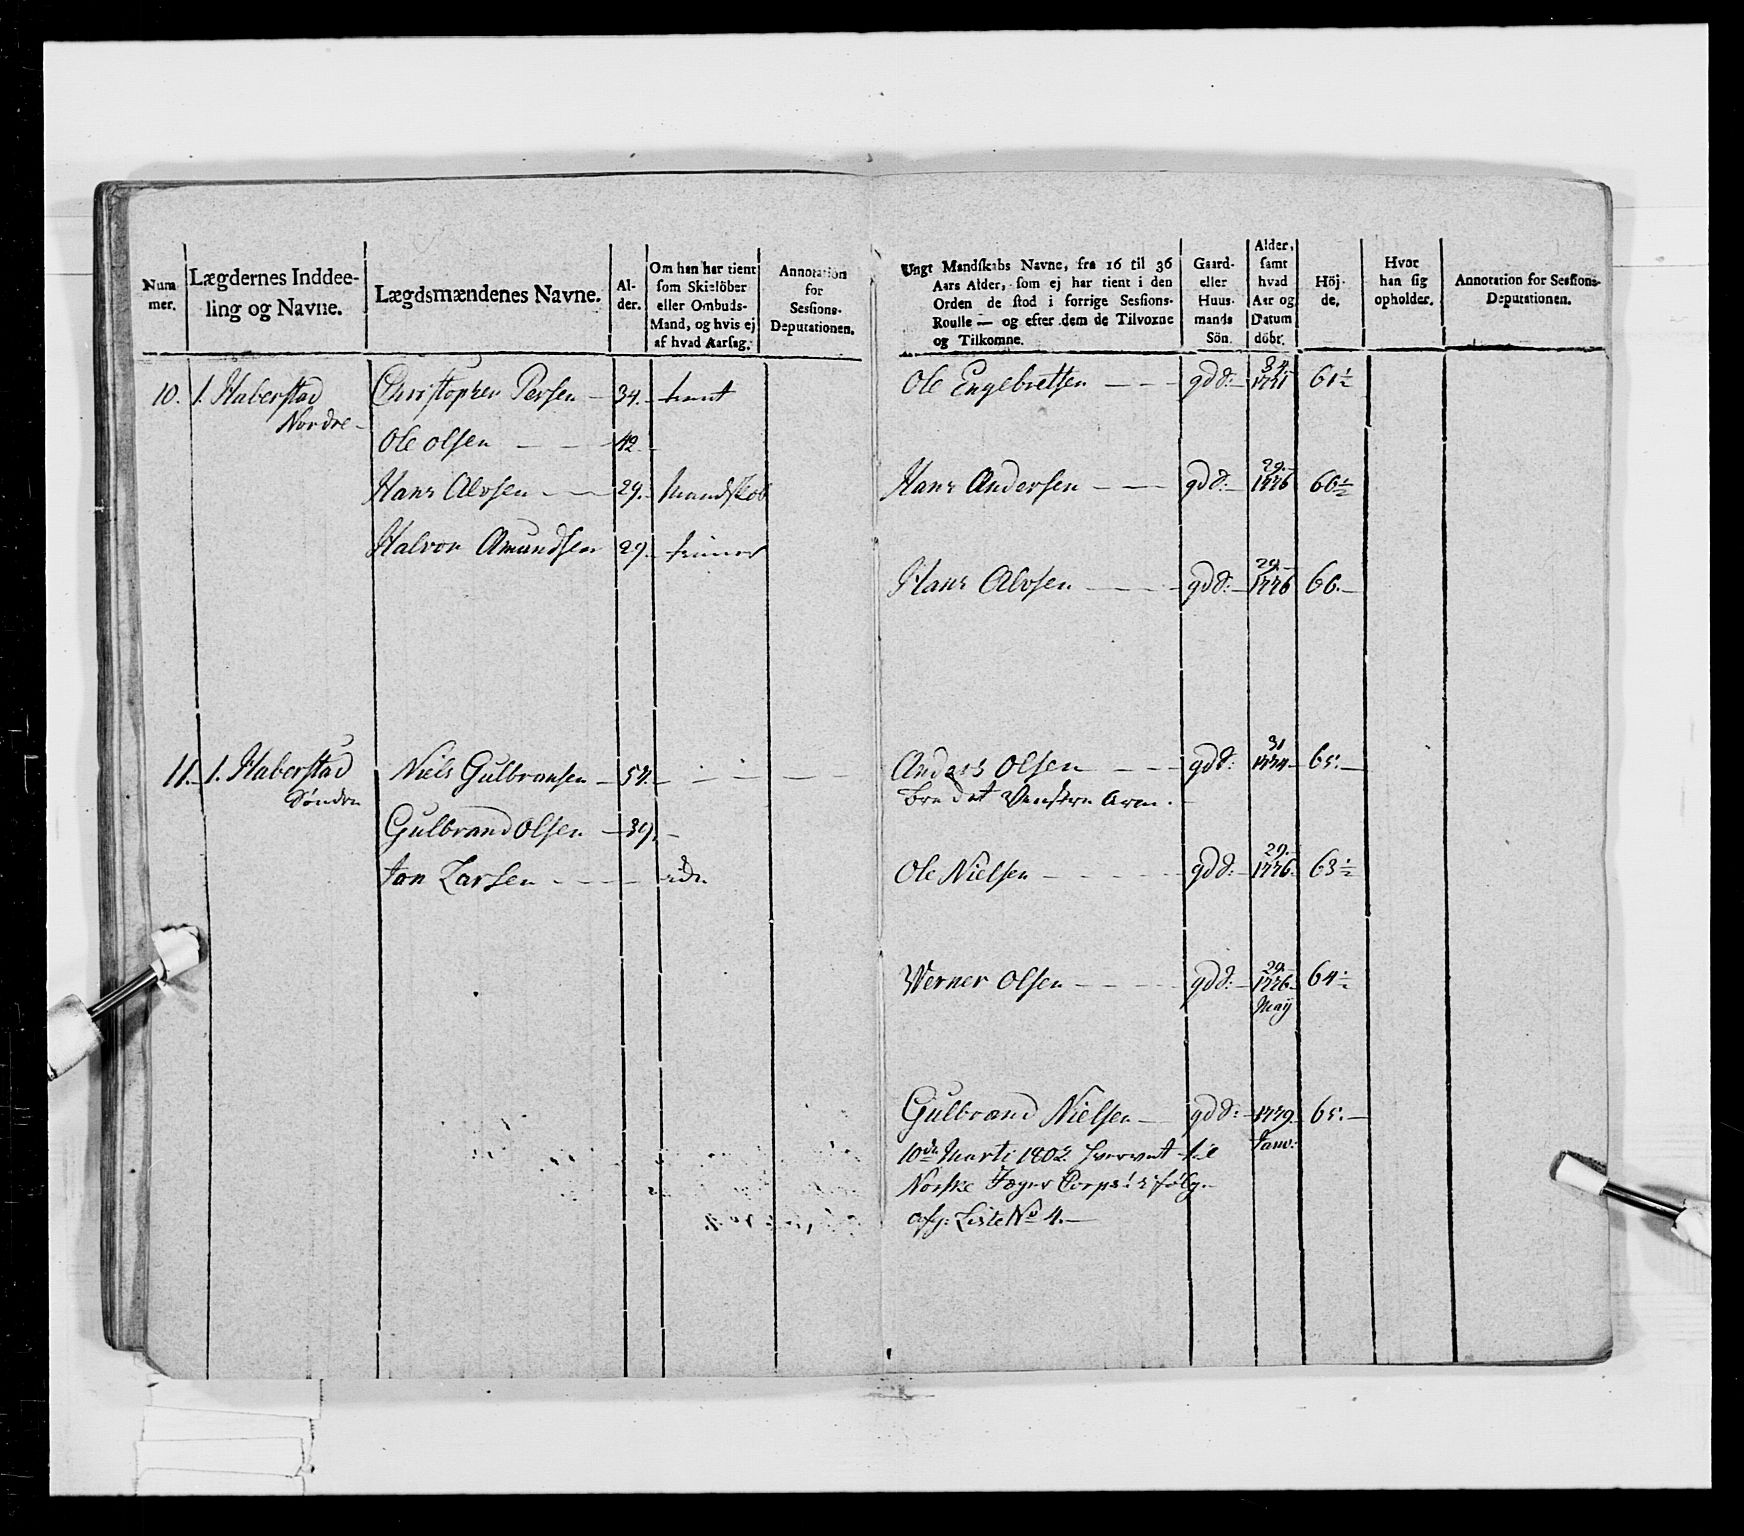 Num-
mer.
Lægdernes Inddee-
ling og Navne.
Lægdsmændenes Navne.
Al-
der.
Om han har tient
som Skielöber
eller Ombuds-
Mand, og hvis ej
af hvad Aarsag.
Annotation
for
Sessions-
Deputationen.
10. 1. Haberstad
Nordre
Christopher Persen - 34. - tient
Ole Olsen - - 42 -
Hans Alvsen - - 29. - Mandskab
Halvor Amundsen 29. -
11. 1. Haberstad
Söndre
Niels Gulbransen - 57. -
Gulbrand Olsen - 39. -
Jon Larsen - - -
Ungt Mandskabs Navne, fra 16 til 36
Aars Alder, som ej har tient i den
Orden de stod i forrige Sessions-
Roulle — og efter dem de Tilvoxne
og Tilkomne.
Gaard-
eller
Huus-
mands
Sön.
Alder,
samt
hvad
Aar og
Datum
döbt.
Höj-
de.
Hvor
han sig
opholder.
Annotation for Sessions-
Deputationen.
34
Ole Engebretsen - - - gdS: - 1771 61½
29. -
Hans Andersen - - - gdS: - 1776 66½
29. -
Hans Alvsen - - - gdS: - 1776 66. -
31
Anders Olsen - - - gdS: 1774 - 65. -
Brudet Venstre Arm. -
29. -
Ole Nielsen - - - gdS: - 1776. 63½
29.
Werner Olsen - - - gdS: - 1776 - 64½
May
Gulbrand Nielsen - gdS: - 1779. 65. -
Janv:
10de Marti 1802 hvervet til
Norske Jæger Corps: i fölge
afg: Liste No 4. -